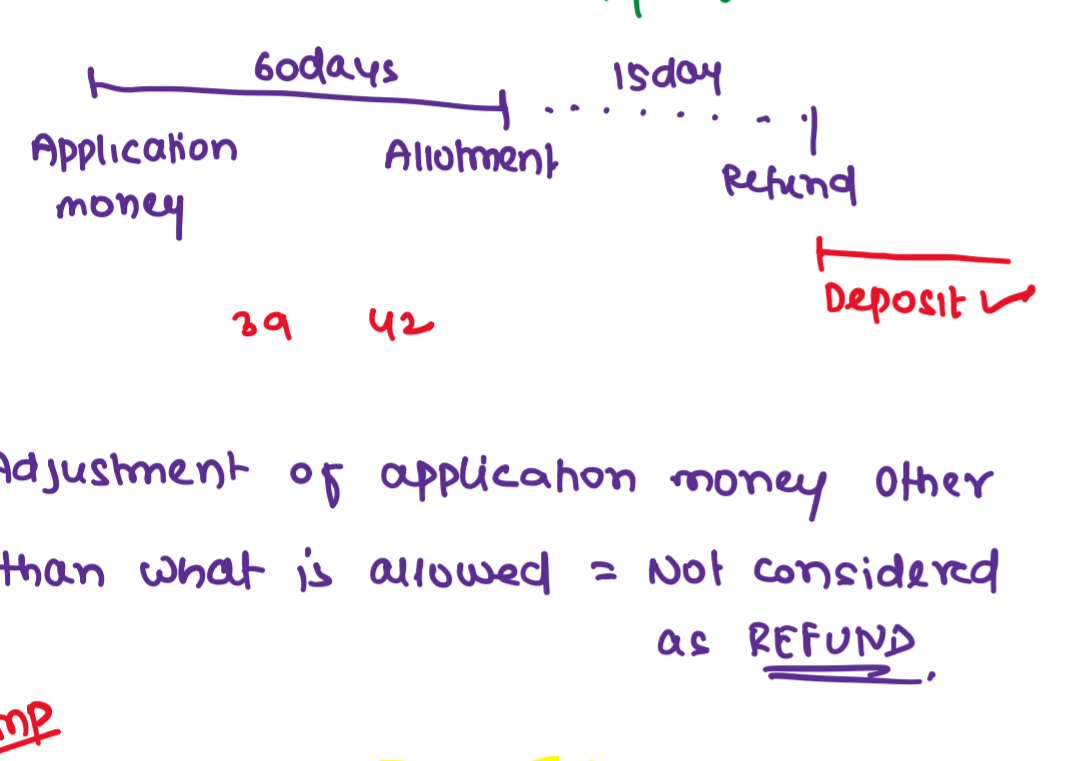 60days 15day
Application Allotment Refund
money
Deposit
39 42
Adjustment of application money other
than what is allowed = Not considered
as REFUND.